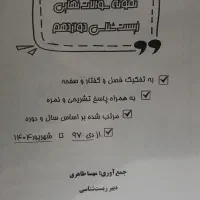 نمونه سوالات نهایی
زیست‌شناسی دوازدهم
به تفکیک فصل و گفتار و صفحه
به همراه پاسخ تشریحی و نمره
مرتب شده بر اساس سال و دوره
از دی ۹۷ تا شهریور ۱۴۰۴
جمع آوری: مهسا طاهری
دبیر زیست‌شناسی